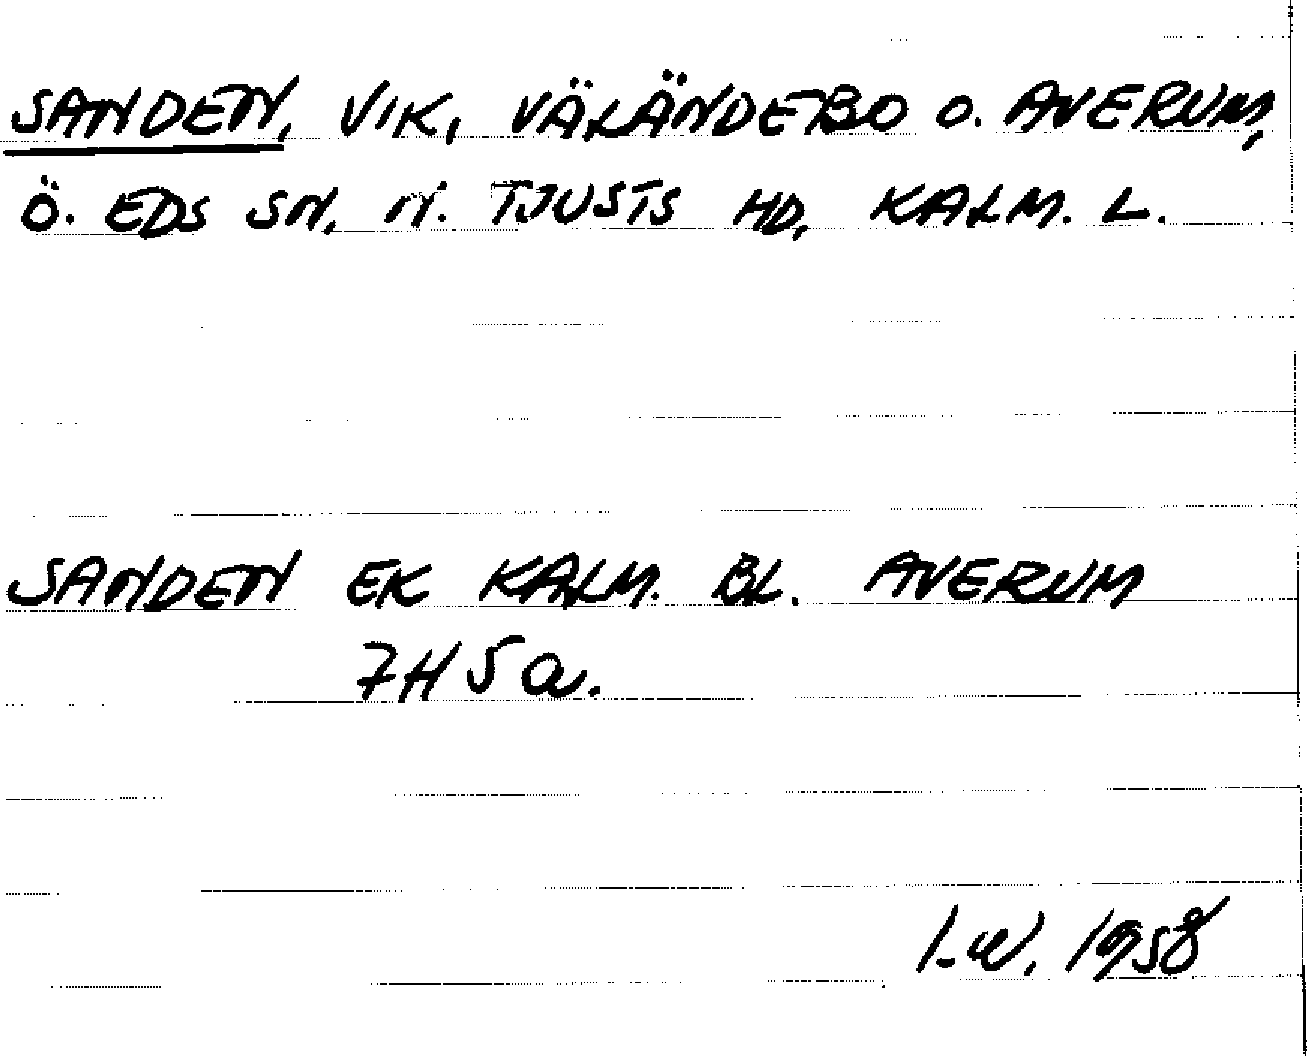 SANDEN, VIK, VÄLÄNDEBO O. AVERUM,
Ö. EDS SN, N. TJUSTS HD, KALM. L.
SANDEN EK KALM. BL. AVERUM
7H 5 a.
I-W. 1958